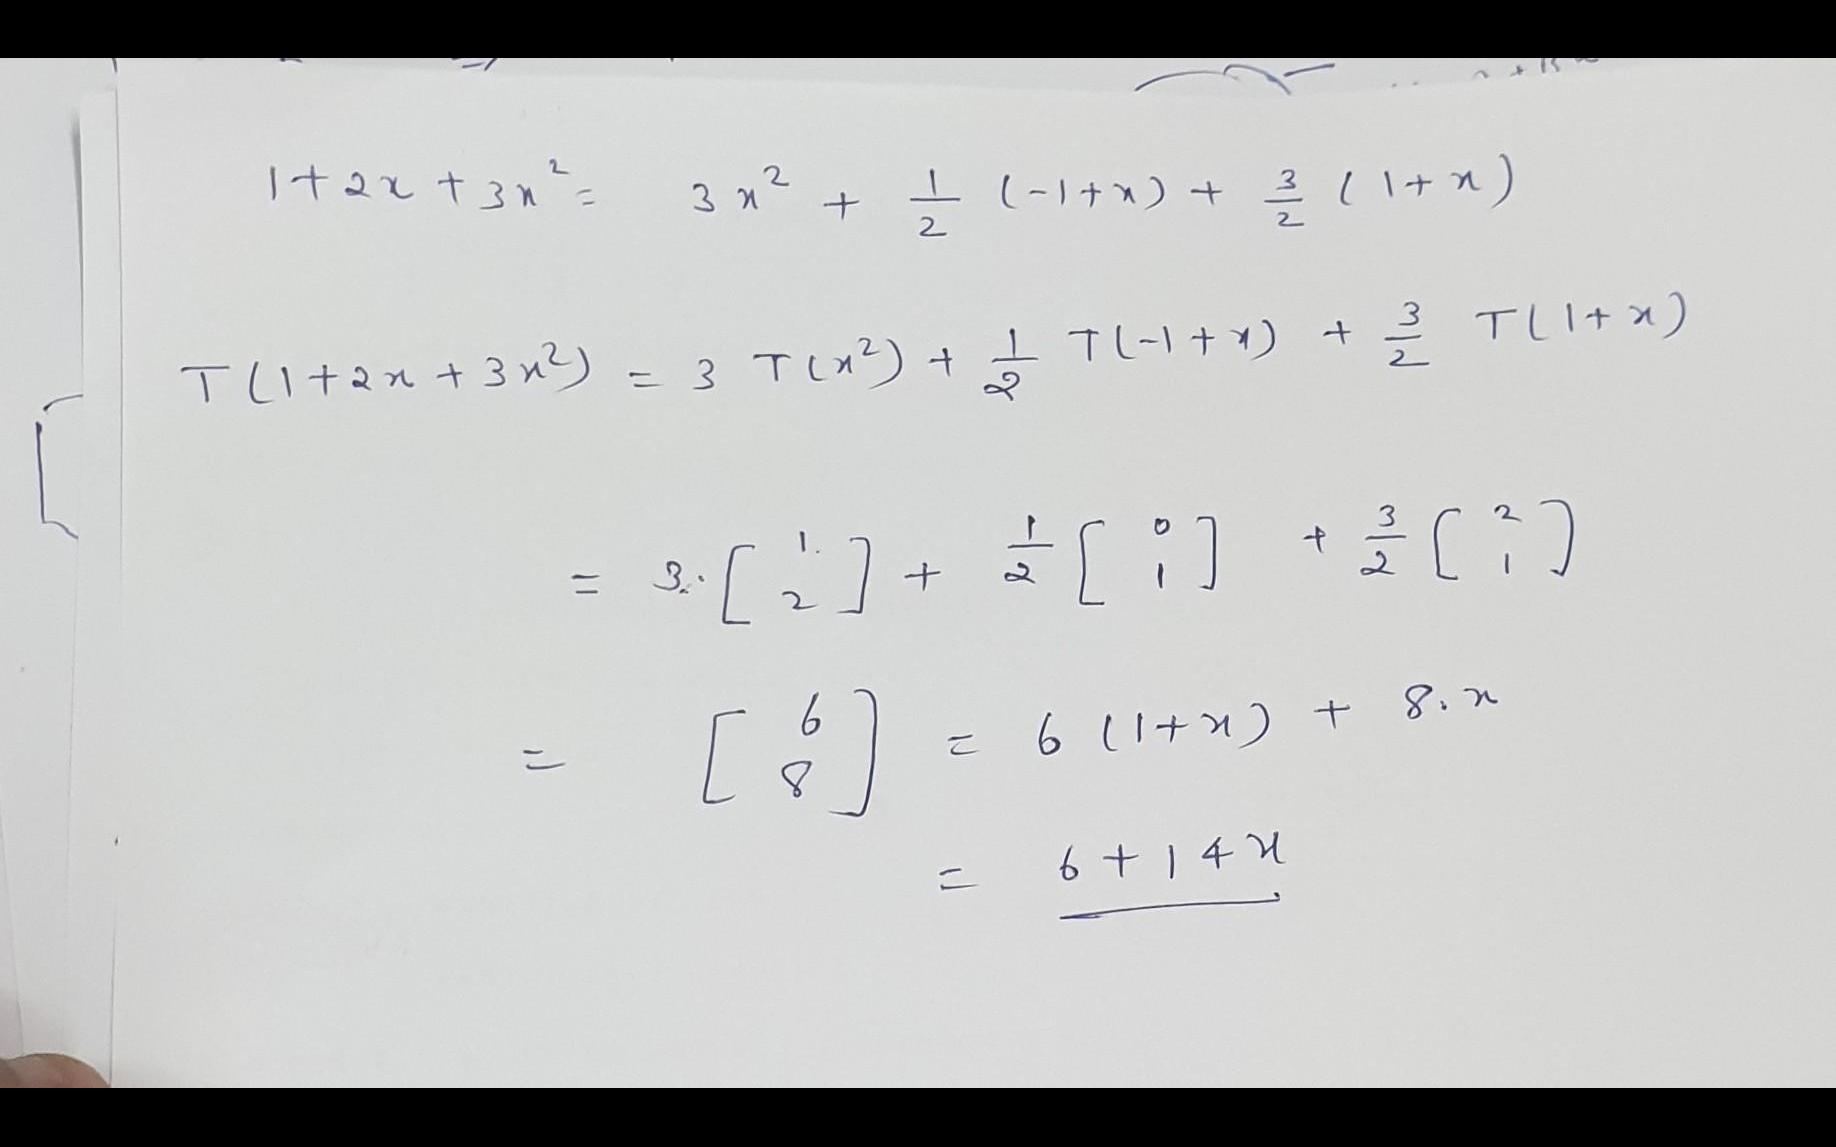 1+2x+3x² = 3x² + 1/2 (-1+x) + 3/2 (1+x)
T(1+2x+3x²) = 3 T(x²) + 1/2 T(-1+x) + 3/2 T(1+x)
= 3. [1. 2] + 1/2 [0 1] + 3/2 [2 1]
= [6 8] = 6 (1+x) + 8.x
= 6+14x